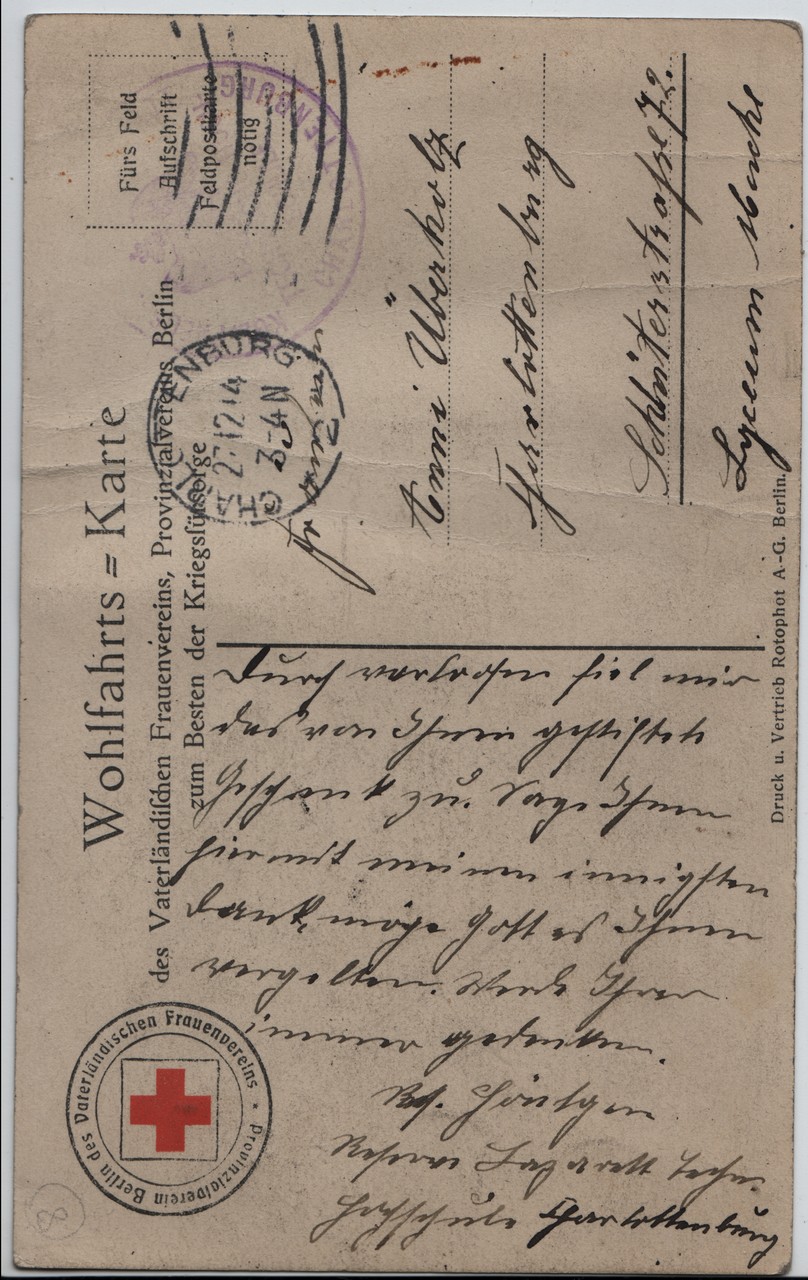 Wohlfahrts=Karte
des Vaterländischen Frauenvereins, Provinzialvereins Berlin
zum Besten der Kriegsfürsorge
Fürs Feld
Aufschrift
Feldpostkarte
nötig
CHARLOTTENBURG
27.12.14
3-4N
Provinzialverein Berlin des Vaterländischen Frauenvereins
Durch verloosen fiel mir
das von Ihnen gestiftete
Geschenk zu. Sage Ihnen
hiermit meinen innigsten
Dank, möge Gott es Ihnen
vergelten. Werde Ihrer
immer gedenken.
Reserve Lazarett Techn.
Hochschule Charlottenburg
Anni Überholz
Charlottenburg
Schlüterstraße 72.
Lyceum
Druck u. Vertrieb Rotophot A.-G. Berlin.
8